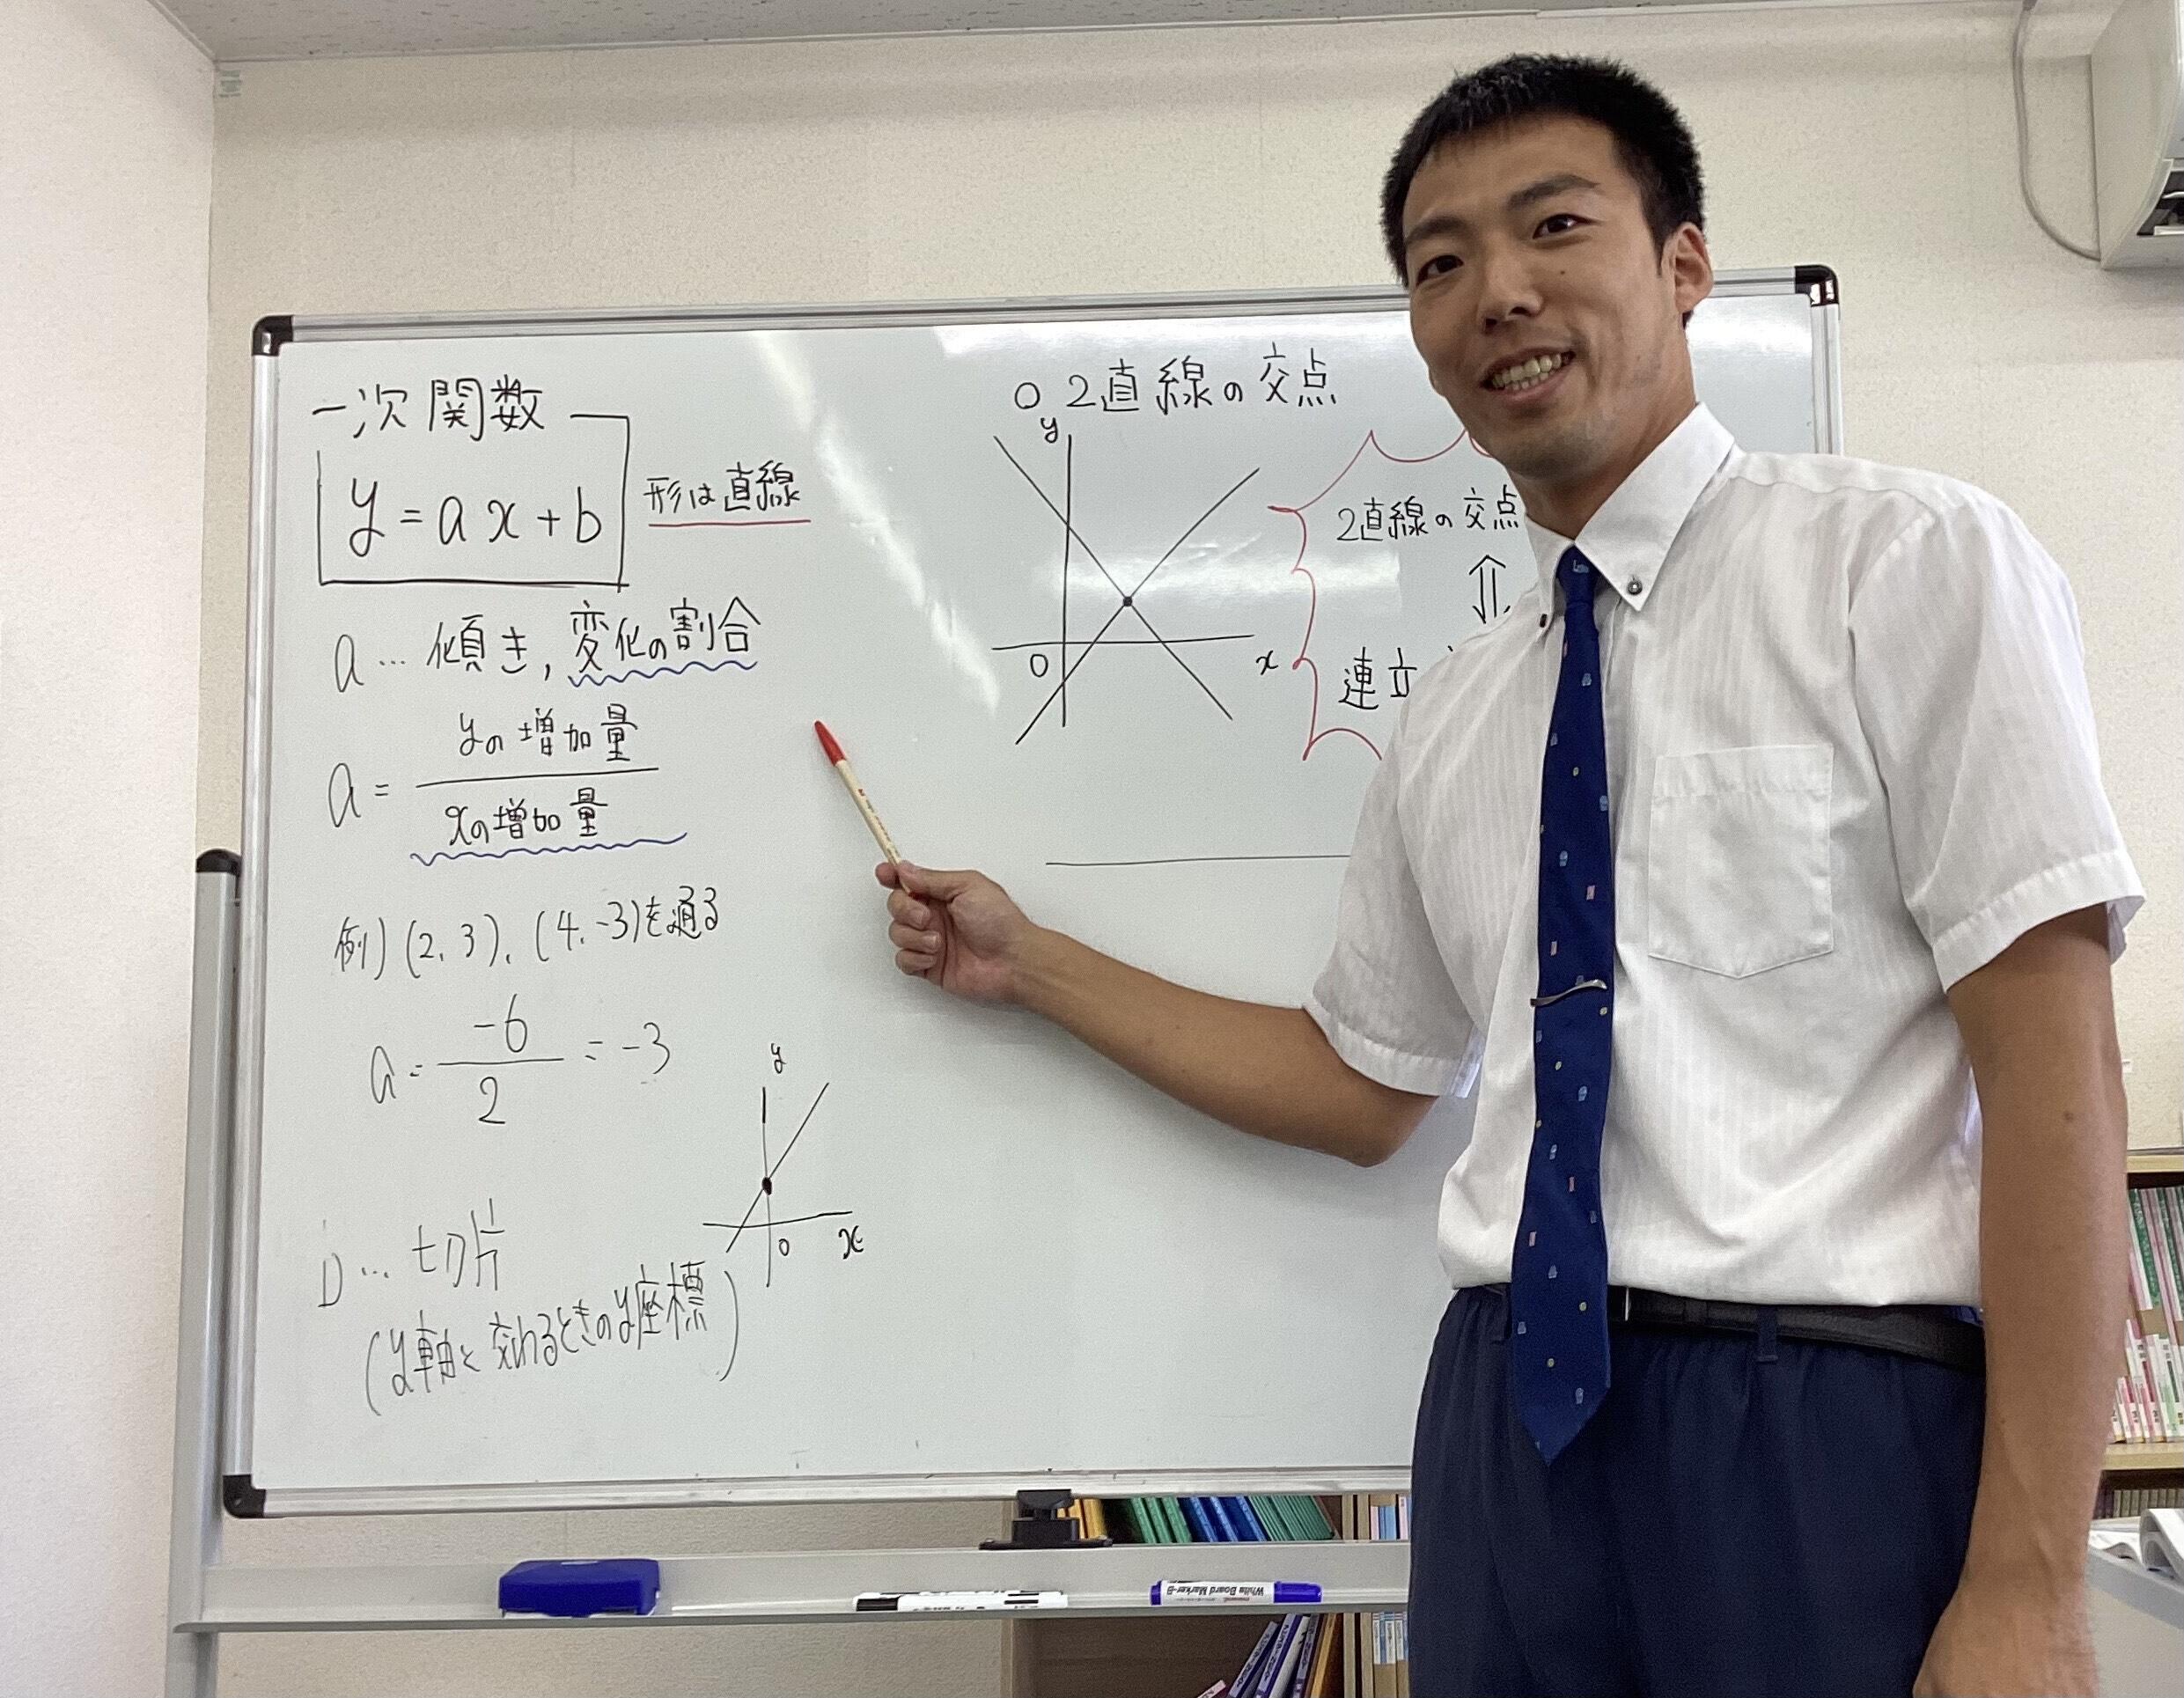 一次関数
y = ax + b
形は直線
a … 傾き, 変化の割合
a = yの増加量
xの増加量
例) (2, 3), (4, -3)を通る
a = -6 = -3
2
y
0 x
b … 切片
(y軸と交わるときのy座標)
○ 2直線の交点
y
0 x
2直線の交点
⇕
連立
White Board Marker-B